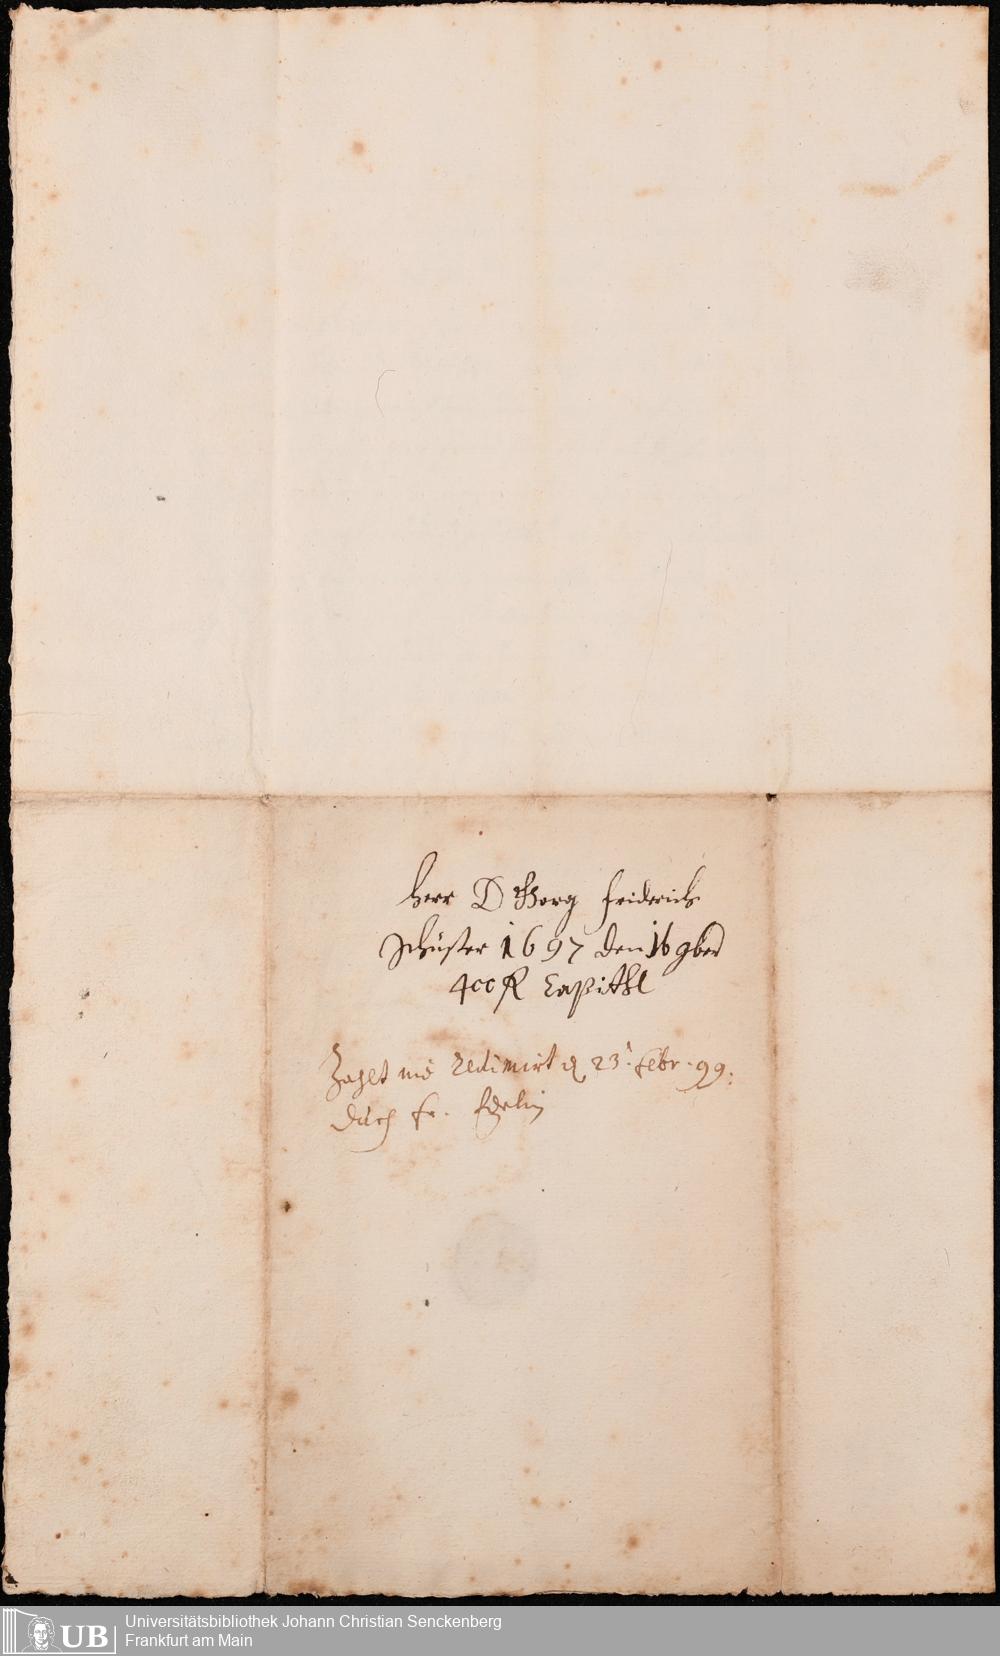 Herr D Georg Friderich
Schuster 1697 den 16 9ber
400 R Capithl
Zahlt und Redimirt d 23. Febr. 99.
durch Fr.
Universitätsbibliothek Johann Christian Senckenberg
Frankfurt am Main
UB